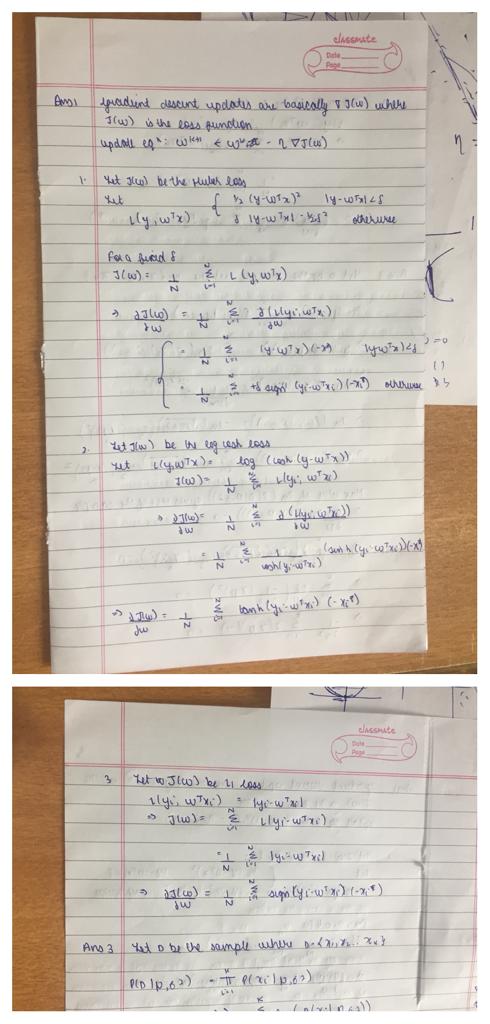 classmate
Date
Page
Ans 1 gradient descent updates are basically ∇J(w) where
J(w) is the loss function.
update eqⁿ: w^(k+1) ← w^k - η ∇J(w)
η =
1. Let J(w) be the Huber loss
Let { ½ (y-wᵀx)² |y-wᵀx|<δ
L(y, wᵀx) δ |y-wᵀx| - ½δ² otherwise
For a fixed δ
J(w) = 1/N Σ_{i=1}^N L(y, wᵀx)
⇒ ∂J(w)/∂w = 1/N Σ_{i=1}^N ∂(L(yi, wᵀxi))/∂w
{ = 1/N Σ_{i=1}^N (y-wᵀx)(-xᵀ) |y-wᵀx|<δ
= 1/N Σ_{i=1}^N +δ sign (yi-wᵀxi)(-xiᵀ) otherwise
2. Let J(w) be the log cosh loss
Let L(y,wᵀx) = log (cosh (y-wᵀx))
J(w) = 1/N Σ_{i=1}^N L(yi, wᵀxi)
⇒ ∂J(w)/∂w = 1/N Σ_{i=1}^N ∂(L(yi, wᵀxi))/∂w
= 1/N Σ_{i=1}^N 1/cosh(yi-wᵀxi) (sinh(yi-wᵀxi))(-xᵀ)
⇒ ∂J(w)/∂w = 1/N Σ_{i=1}^N tanh(yi-wᵀxi) (-xiᵀ)
classmate
Date
Page
3. Let J(w) be L1 loss
L(yi, wᵀxi) = |yi-wᵀxi|
⇒ J(w) = Σ_{i=1}^N L(yi-wᵀxi)
= 1/N Σ_{i=1}^N |yi-wᵀxi|
⇒ ∂J(w)/∂w = 1/N Σ_{i=1}^N sign(yi-wᵀxi) (-xiᵀ)
Ans 3 Let D be the sample where D={x1,x2...xn}